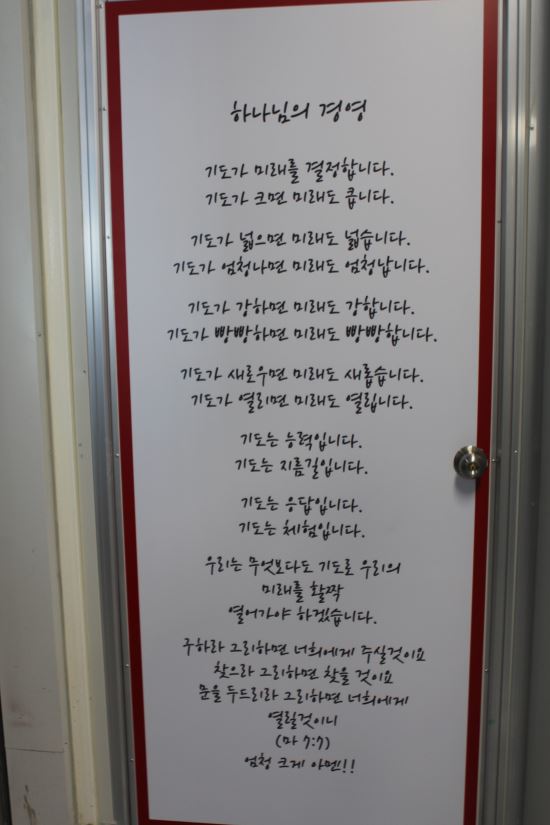 하나님의 경영
기도가 미래를 결정합니다.
기도가 크면 미래도 큽니다.
기도가 넓으면 미래도 넓습니다.
기도가 엄청나면 미래도 엄청납니다.
기도가 강하면 미래도 강합니다.
기도가 빵빵하면 미래도 빵빵합니다.
기도가 새로우면 미래도 새롭습니다.
기도가 열리면 미래도 열립니다.
기도는 능력입니다.
기도는 지름길입니다.
기도는 응답입니다.
기도는 체험입니다.
우리는 무엇보다도 기도로 우리의
미래를 활짝
열어가야 하겠습니다.
구하라 그리하면 너희에게 주실것이요
찾으라 그리하면 찾을 것이요
문을 두드리라 그리하면 너희에게
열릴것이니
(마 7:7)
엄청 크게 아멘!!